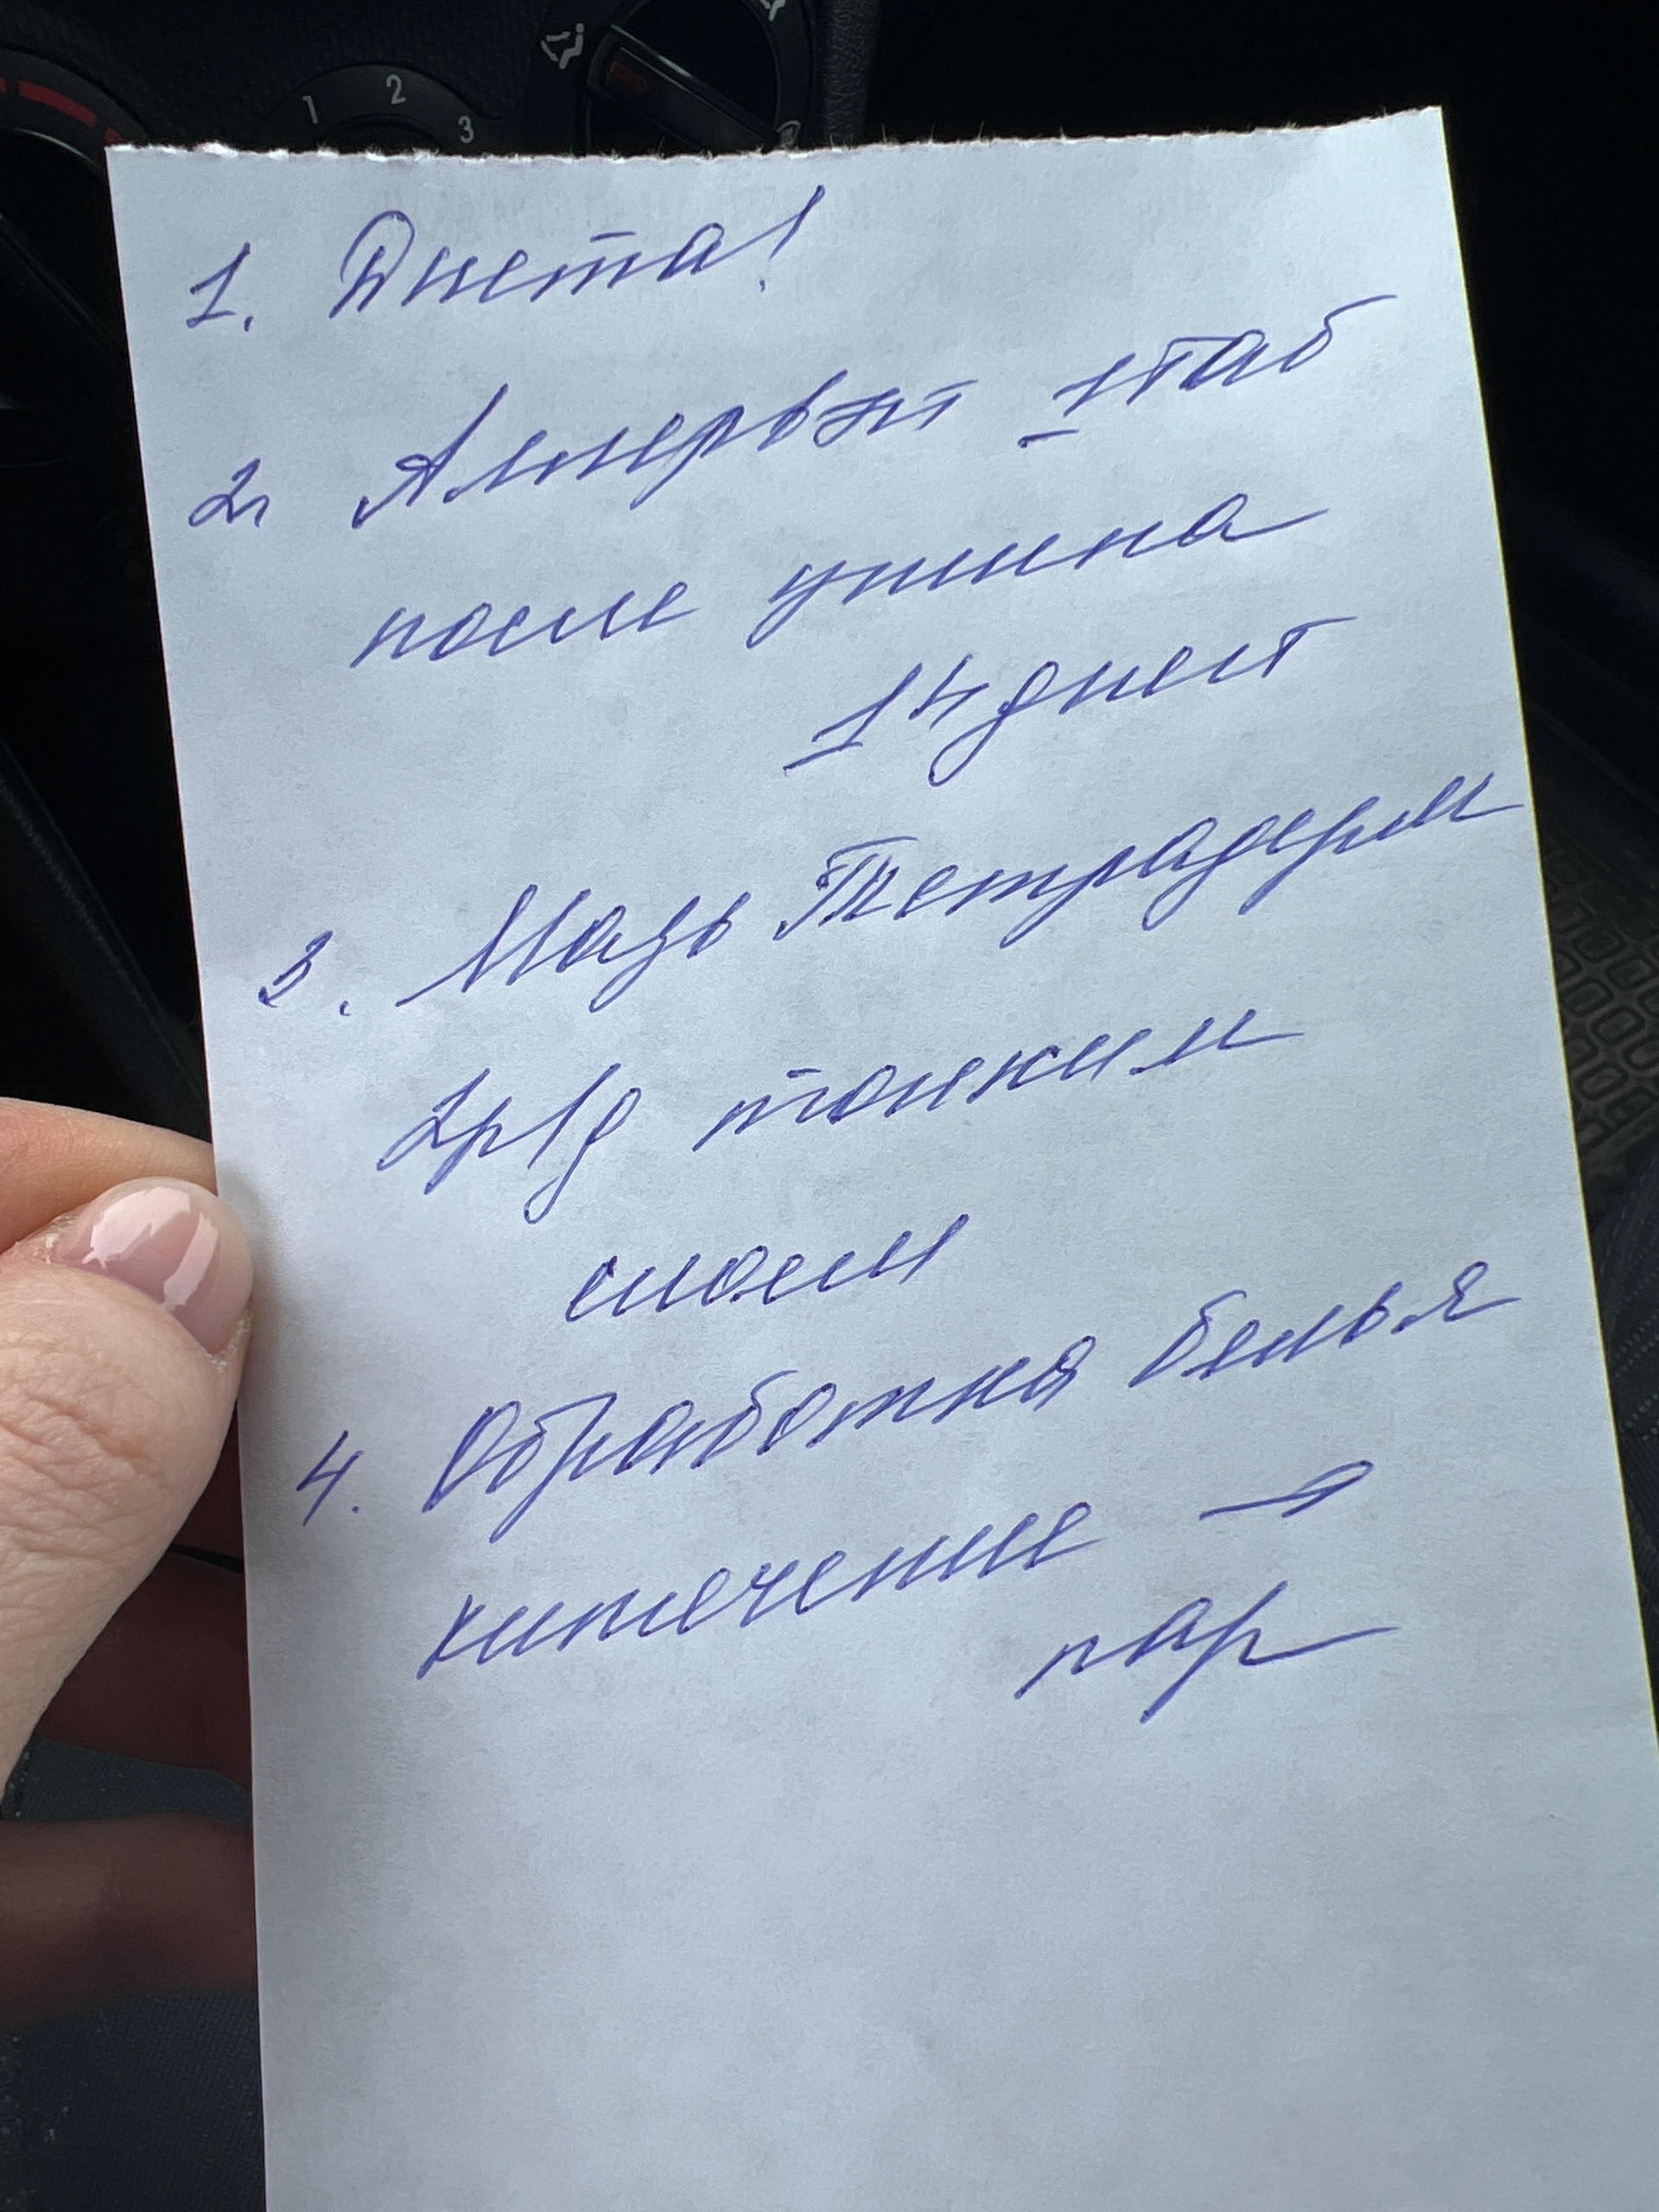 1 2 3
1. Диета!
2. 1 таб
после ужина
14 дней
3. Мазь Тетрадерм
2р/д тонким
слоем
4. Обработка белья
кипячение →
пар